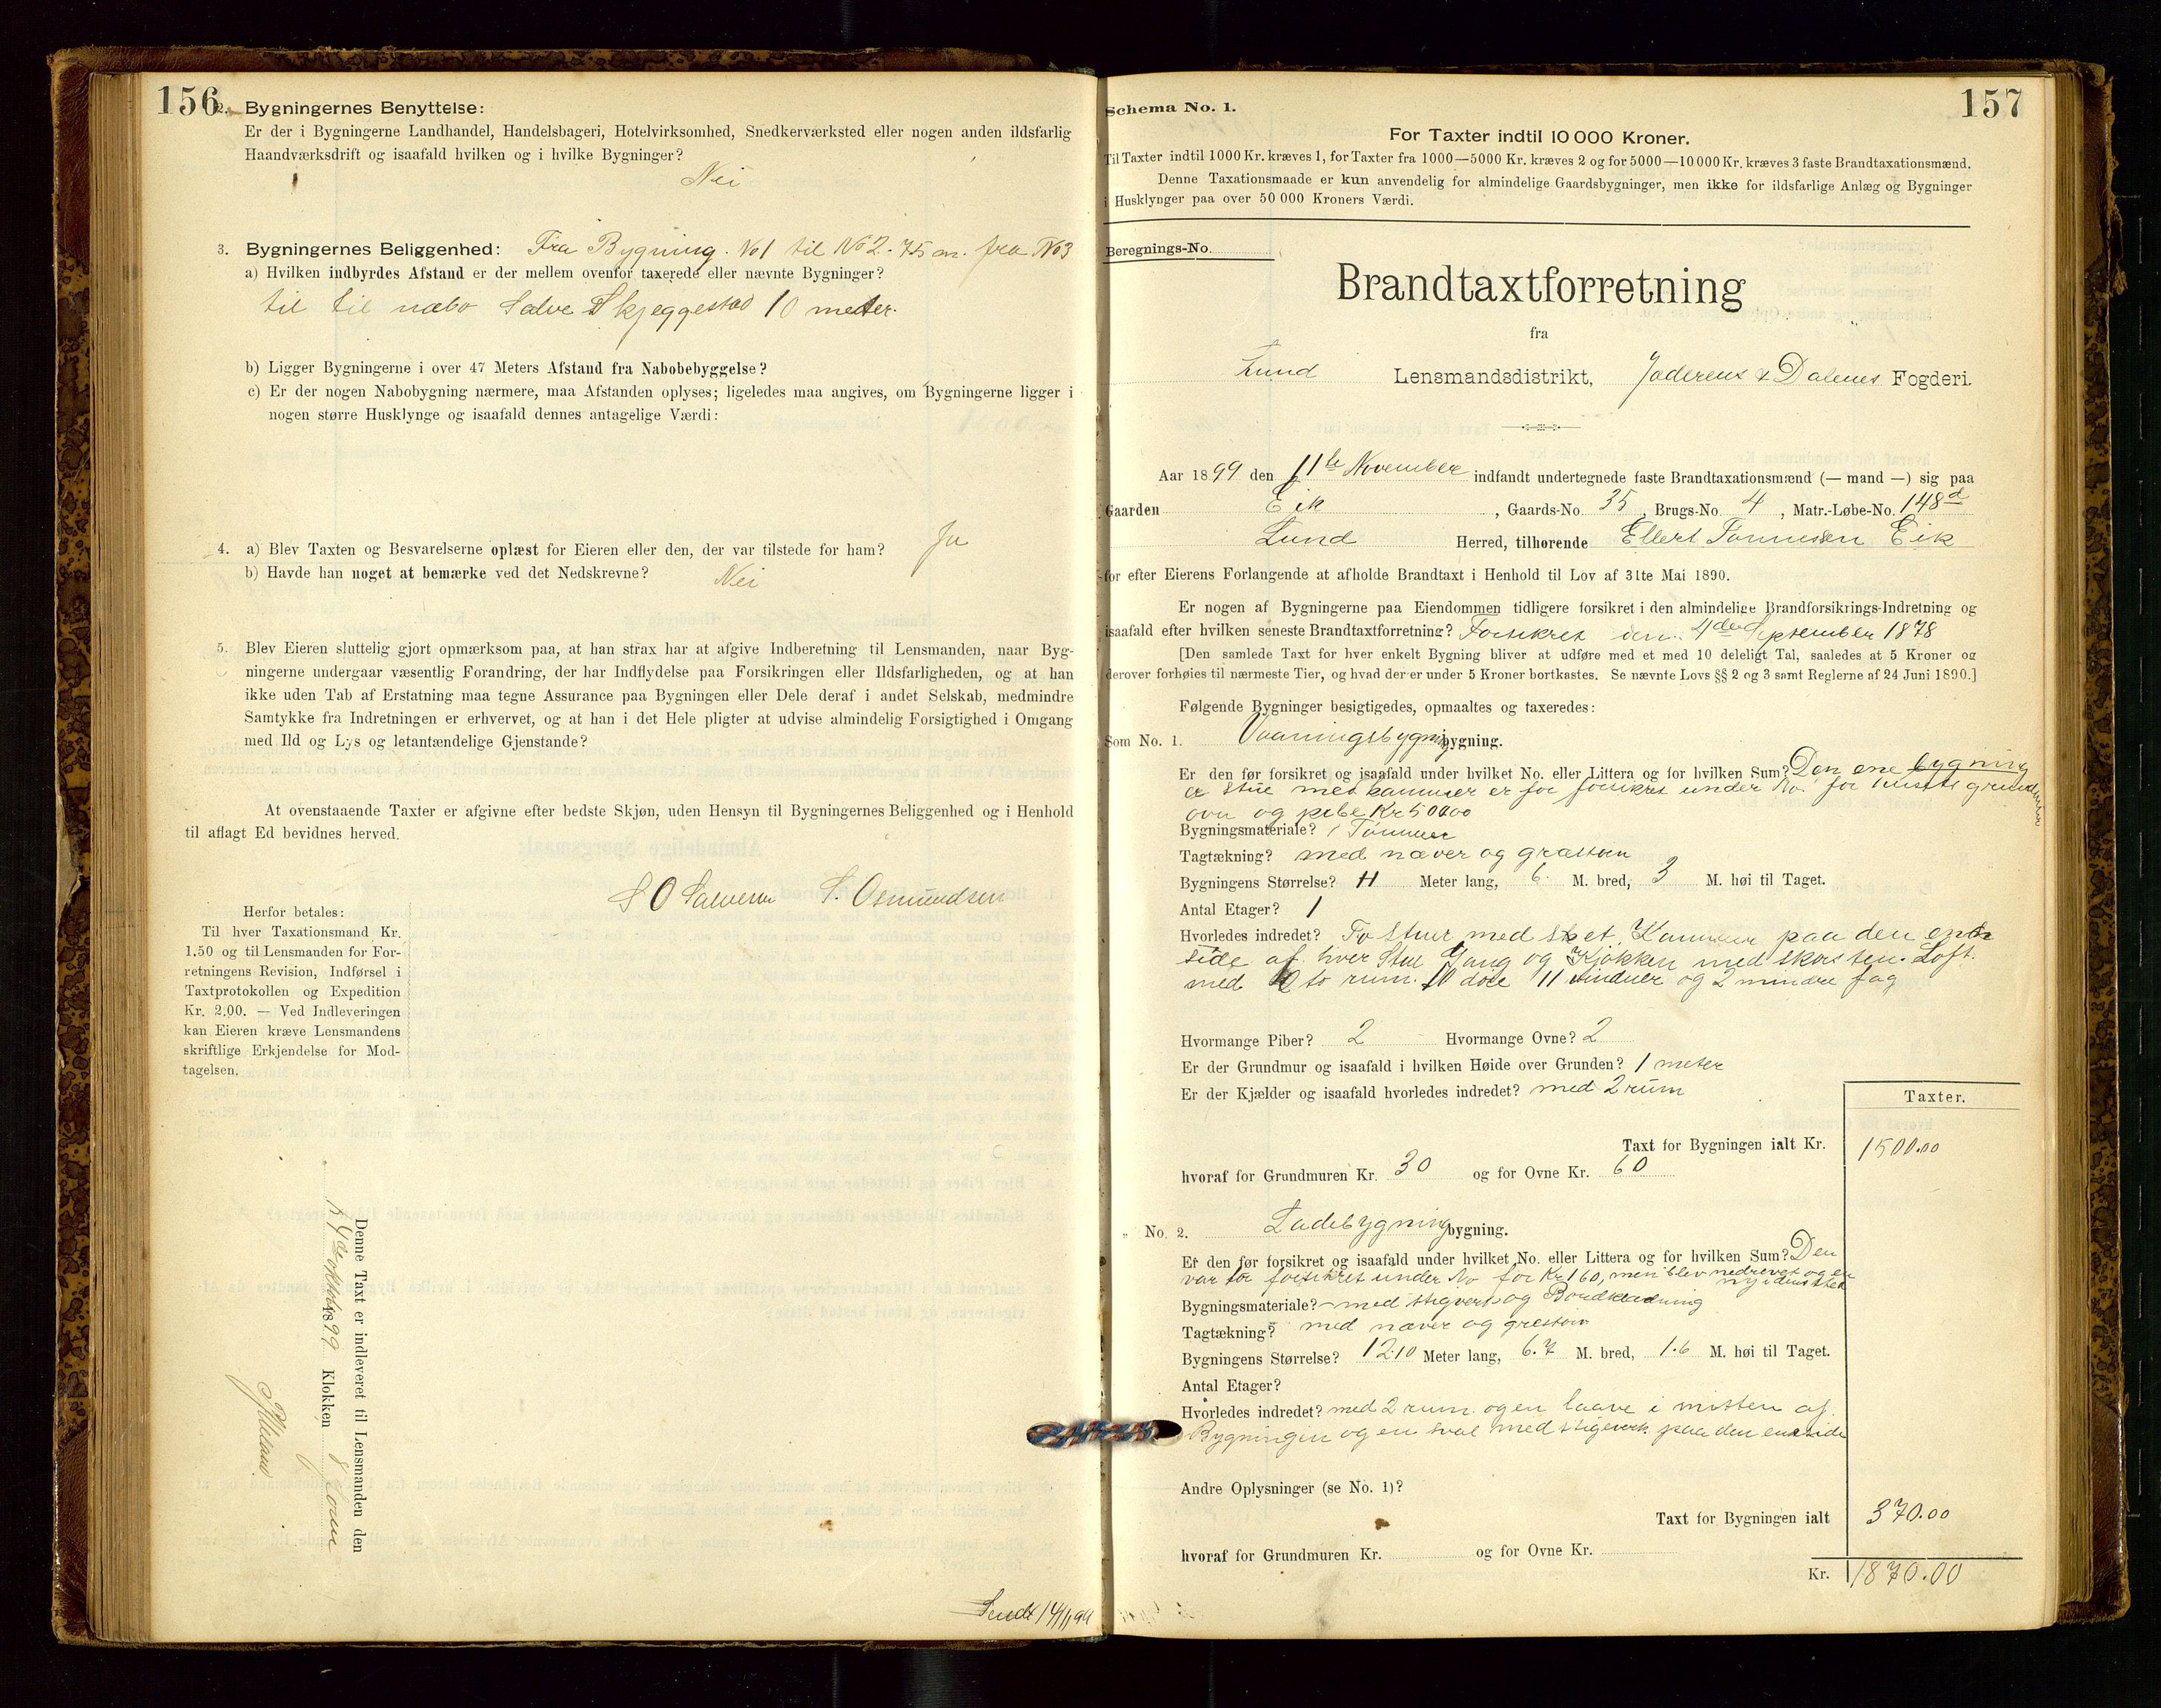 156
2. Bygningernes Benyttelse:
Er der i Bygningerne Landhandel, Handelsbageri, Hotelvirksomhed, Snedkerværksted eller nogen anden ildsfarlig
Haandværksdrift og isaafald hvilken og i hvilke Bygninger?
Nei
3. Bygningernes Beliggenhed: Fra Bygning. No1 til No2. 75 m. fra No3
a) Hvilken indbyrdes Afstand er der mellem ovenfor taxerede eller nævnte Bygninger?
til til nabo Salve Skjeggestad 10 meter.
b) Ligger Bygningerne i over 47 Meters Afstand fra Nabobebyggelse?
c) Er der nogen Nabobygning nærmere, maa Afstanden oplyses; ligeledes maa angives, om Bygningerne ligger i
nogen større Husklynge og isaafald dennes antagelige Værdi:
4. a) Blev Taxten og Besvarelserne oplæst for Eieren eller den, der var tilstede for ham? Ja
b) Havde han noget at bemærke ved det Nedskrevne? Nei
5. Blev Eieren sluttelig gjort opmærksom paa, at han strax har at afgive Indberetning til Lensmanden, naar Byg-
ningerne undergaar væsentlig Forandring, der har Indflydelse paa Forsikringen eller Ildsfarligheden, og at han
ikke uden Tab af Erstatning maa tegne Assurance paa Bygningen eller Dele deraf i andet Selskab, medmindre
Samtykke fra Indretningen er erhvervet, og at han i det Hele pligter at udvise almindelig Forsigtighed i Omgang
med Ild og Lys og letantændelige Gjenstande?
At ovenstaaende Taxter er afgivne efter bedste Skjøn, uden Hensyn til Bygningernes Beliggenhed og i Henhold
til aflagt Ed bevidnes herved.
S O Salvesen S. Osmundsen
Herfor betales:
Til hver Taxationsmand Kr.
1.50 og til Lensmanden for For-
retningens Revision, Indførsel i
Taxtprotokollen og Expedition
Kr. 2.00. — Ved Indleveringen
kan Eieren kræve Lensmandens
skriftlige Erkjendelse for Mod-
tagelsen.
Denne Taxt er indleveret til Lensmanden den
oktober 1899 Klokken 8
Sendt 14/11 99
157
Schema No. 1.
For Taxter indtil 10 000 Kroner.
Til Taxter indtil 1000 Kr. kræves 1, for Taxter fra 1000—5000 Kr. kræves 2 og for 5000—10 000 Kr. kræves 3 faste Brandtaxationsmænd.
Denne Taxationsmaade er kun anvendelig for almindelige Gaardsbygninger, men ikke for ildsfarlige Anlæg og Bygninger
i Husklynger paa over 50 000 Kroners Værdi.
Beregnings-No.
Brandtaxtforretning
fra
Lund Lensmandsdistrikt, Jæderens & Dalenes Fogderi.
Aar 1899 den 11te November indfandt undertegnede faste Brandtaxationsmænd (— mand —) sig paa
Gaarden Eik, Gaards-No. 35, Brugs-No. 4, Matr.-Løbe-No. 148d
Lund Herred, tilhørende Ellert Tønnessen Eik
for efter Eierens Forlangende at afholde Brandtaxt i Henhold til Lov af 31te Mai 1890.
Er nogen af Bygningerne paa Eiendommen tidligere forsikret i den almindelige Brandforsikrings-Indretning og
isaafald efter hvilken seneste Brandtaxtforretning? Forsikret den 4de September 1878
[Den samlede Taxt for hver enkelt Bygning bliver at udføre med et med 10 deleligt Tal, saaledes at 5 Kroner og
derover forhøies til nærmeste Tier, og hvad der er under 5 Kroner bortkastes. Se nævnte Lovs §§ 2 og 3 samt Reglerne af 24 Juni 1890.]
Følgende Bygninger besigtigedes, opmaaltes og taxeredes:
Som No. 1. Vaaningsbygning bygning.
Er den før forsikret og isaafald under hvilket No. eller Littera og for hvilken Sum? Den ene bygning
er Stue med kammer er før forsikret under No. for grundmur
ovn og pibe Kr 500.00
Bygningsmateriale? Tømmer
Tagtækning? med næver og græstorv
Bygningens Størrelse? 11 Meter lang, 6 M. bred, 3 M. høi til Taget.
Antal Etager? 1
Hvorledes indredet? To Stuer med et Kammer paa den ende
side af hver Stue Gang og Kjøkken med skorsten. Loft.
med to rum. 10 døre 11 vinduer og 2 mindre fag
Hvormange Piber? 2 Hvormange Ovne? 2
Er der Grundmur og isaafald i hvilken Høide over Grunden? 1 meter
Er der Kjælder og isaafald hvorledes indredet? med 2 rum
Taxter.
Taxt for Bygningen ialt Kr. 1500.00
hvoraf for Grundmuren Kr. 30 og for Ovne Kr. 60
" No. 2. Ladebygning bygning.
Er den før forsikret og isaafald under hvilket No. eller Littera og for hvilken Sum? Den
var før forsikret under No for Kr 160, men blev nedrevet og en
ny
Bygningsmateriale? med stigverk og Bordklædning
Tagtækning? med næver og græstorv
Bygningens Størrelse? 12.10 Meter lang, 6.7 M. bred, 1.6 M. høi til Taget.
Antal Etager?
Hvorledes indredet? med 2 rum og en laave i mitten af
Bygningen og en sval med stigeverk paa den ene side
Andre Oplysninger (se No. 1)?
Taxt for Bygningen ialt 370.00
hvoraf for Grundmuren Kr. og for Ovne Kr.
Kr. 1870.00